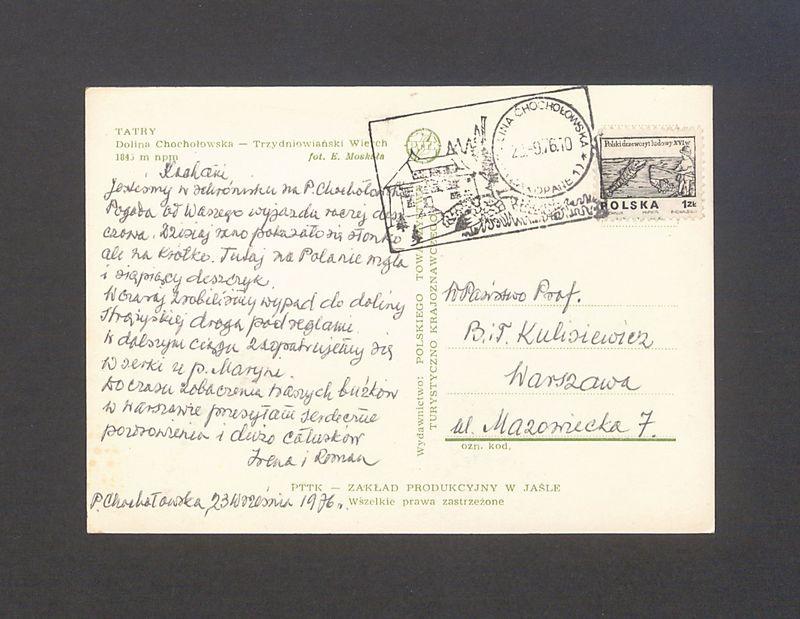 TATRY
Dolina Chochołowska — Trzydniowiański Wierch
1845 m npm
fot. E. Moskała
Kochani
Jesteśmy w schronisku na P. Chochołowskiej
Pogoda od Waszego wyjazdu raczej desz
czowa. Dzisiaj rano pokazało się słonko
ale na krótko. Tutaj na Polanie mgła
i siąpiący deszczyk.
Wczoraj zrobiliśmy wypad do doliny
Strążyskiej drogą pod reglami.
W dalszym ciągu zaopatrujemy się
w serki u p. Maryni.
Do czasu zobaczenia Waszych buzików
w Warszawie przesyłam serdeczne
pozdrowienia i dużo całusków
Irena i Roman
P. Chochołowska, 23 września 1976 r.
DOLINA CHOCHOŁOWSKA
ZAKOPANE 1
Polski drzeworyt ludowy XVI w.
POLSKA 1zł
Wydawnictwo: POLSKIEGO TOWARZYSTWA
TURYSTYCZNO KRAJOZNAWCZEGO
W Państwo Prof.
B. i T. Kulisiewicz
Warszawa
ul. Mazowiecka 7.
ozn. kod,
PTTK — ZAKŁAD PRODUKCYJNY W JAŚLE
Wszelkie prawa zastrzeżone